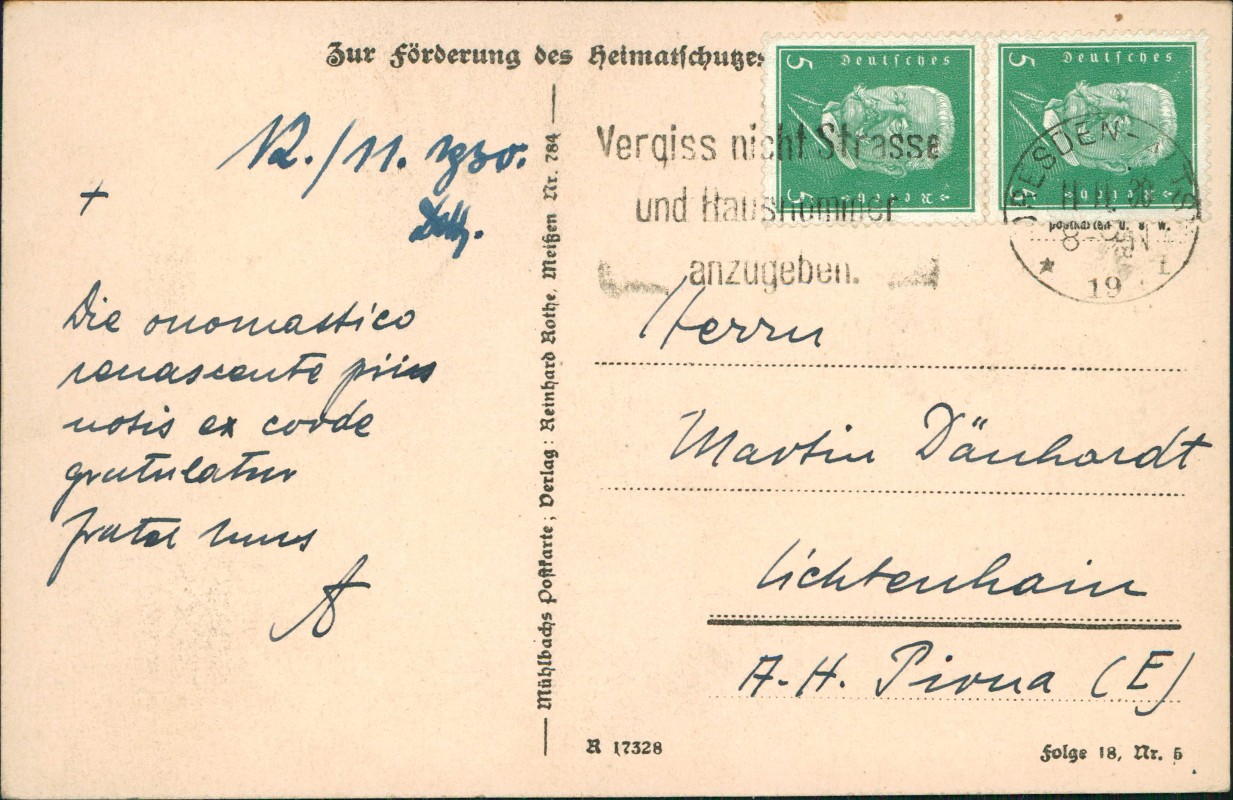 Zur Förderung des Heimatschutzes
12./11. 1930.
+
Die onomastico
renascente piis
votis ex corde
gratulatur
frater tuus
A
Mühlbachs Postkarte; Verlag: Reinhard Rothe, Meißen Nr. 784
Deutsches
5
5
Reich
Deutsches
5
Reich
Vergiss nicht Strasse
und Hausnummer
anzugeben.
DRESDEN-
11.11.30
8-
19
Postkarten u. s. w.
Herrn
Martin Dänhardt
Lichtenhain
A.-H. Pirna (E)
R 17328
Folge 18, Nr. 5